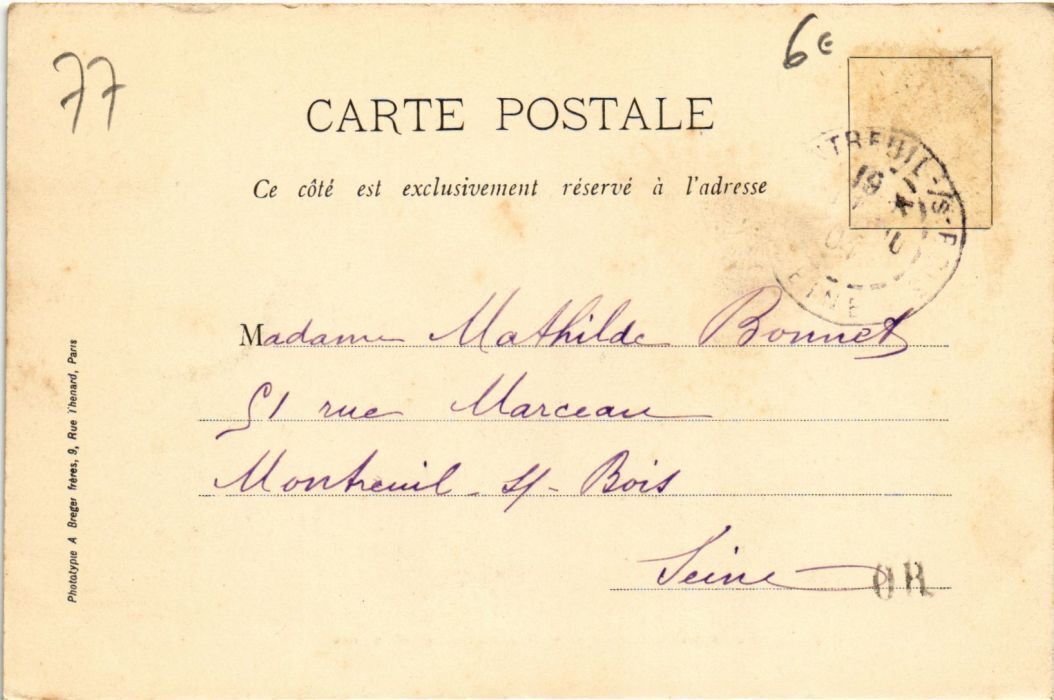 77
6€
CARTE POSTALE
Ce côté est exclusivement réservé à l'adresse
Madame Mathilde Bonnet
51 rue Marceau
Montreuil - s/- Bois
Seine
OR
TREUIL-/S-
19
EINE
Phototypie A Breger frères, 9, Rue Thenard, Paris